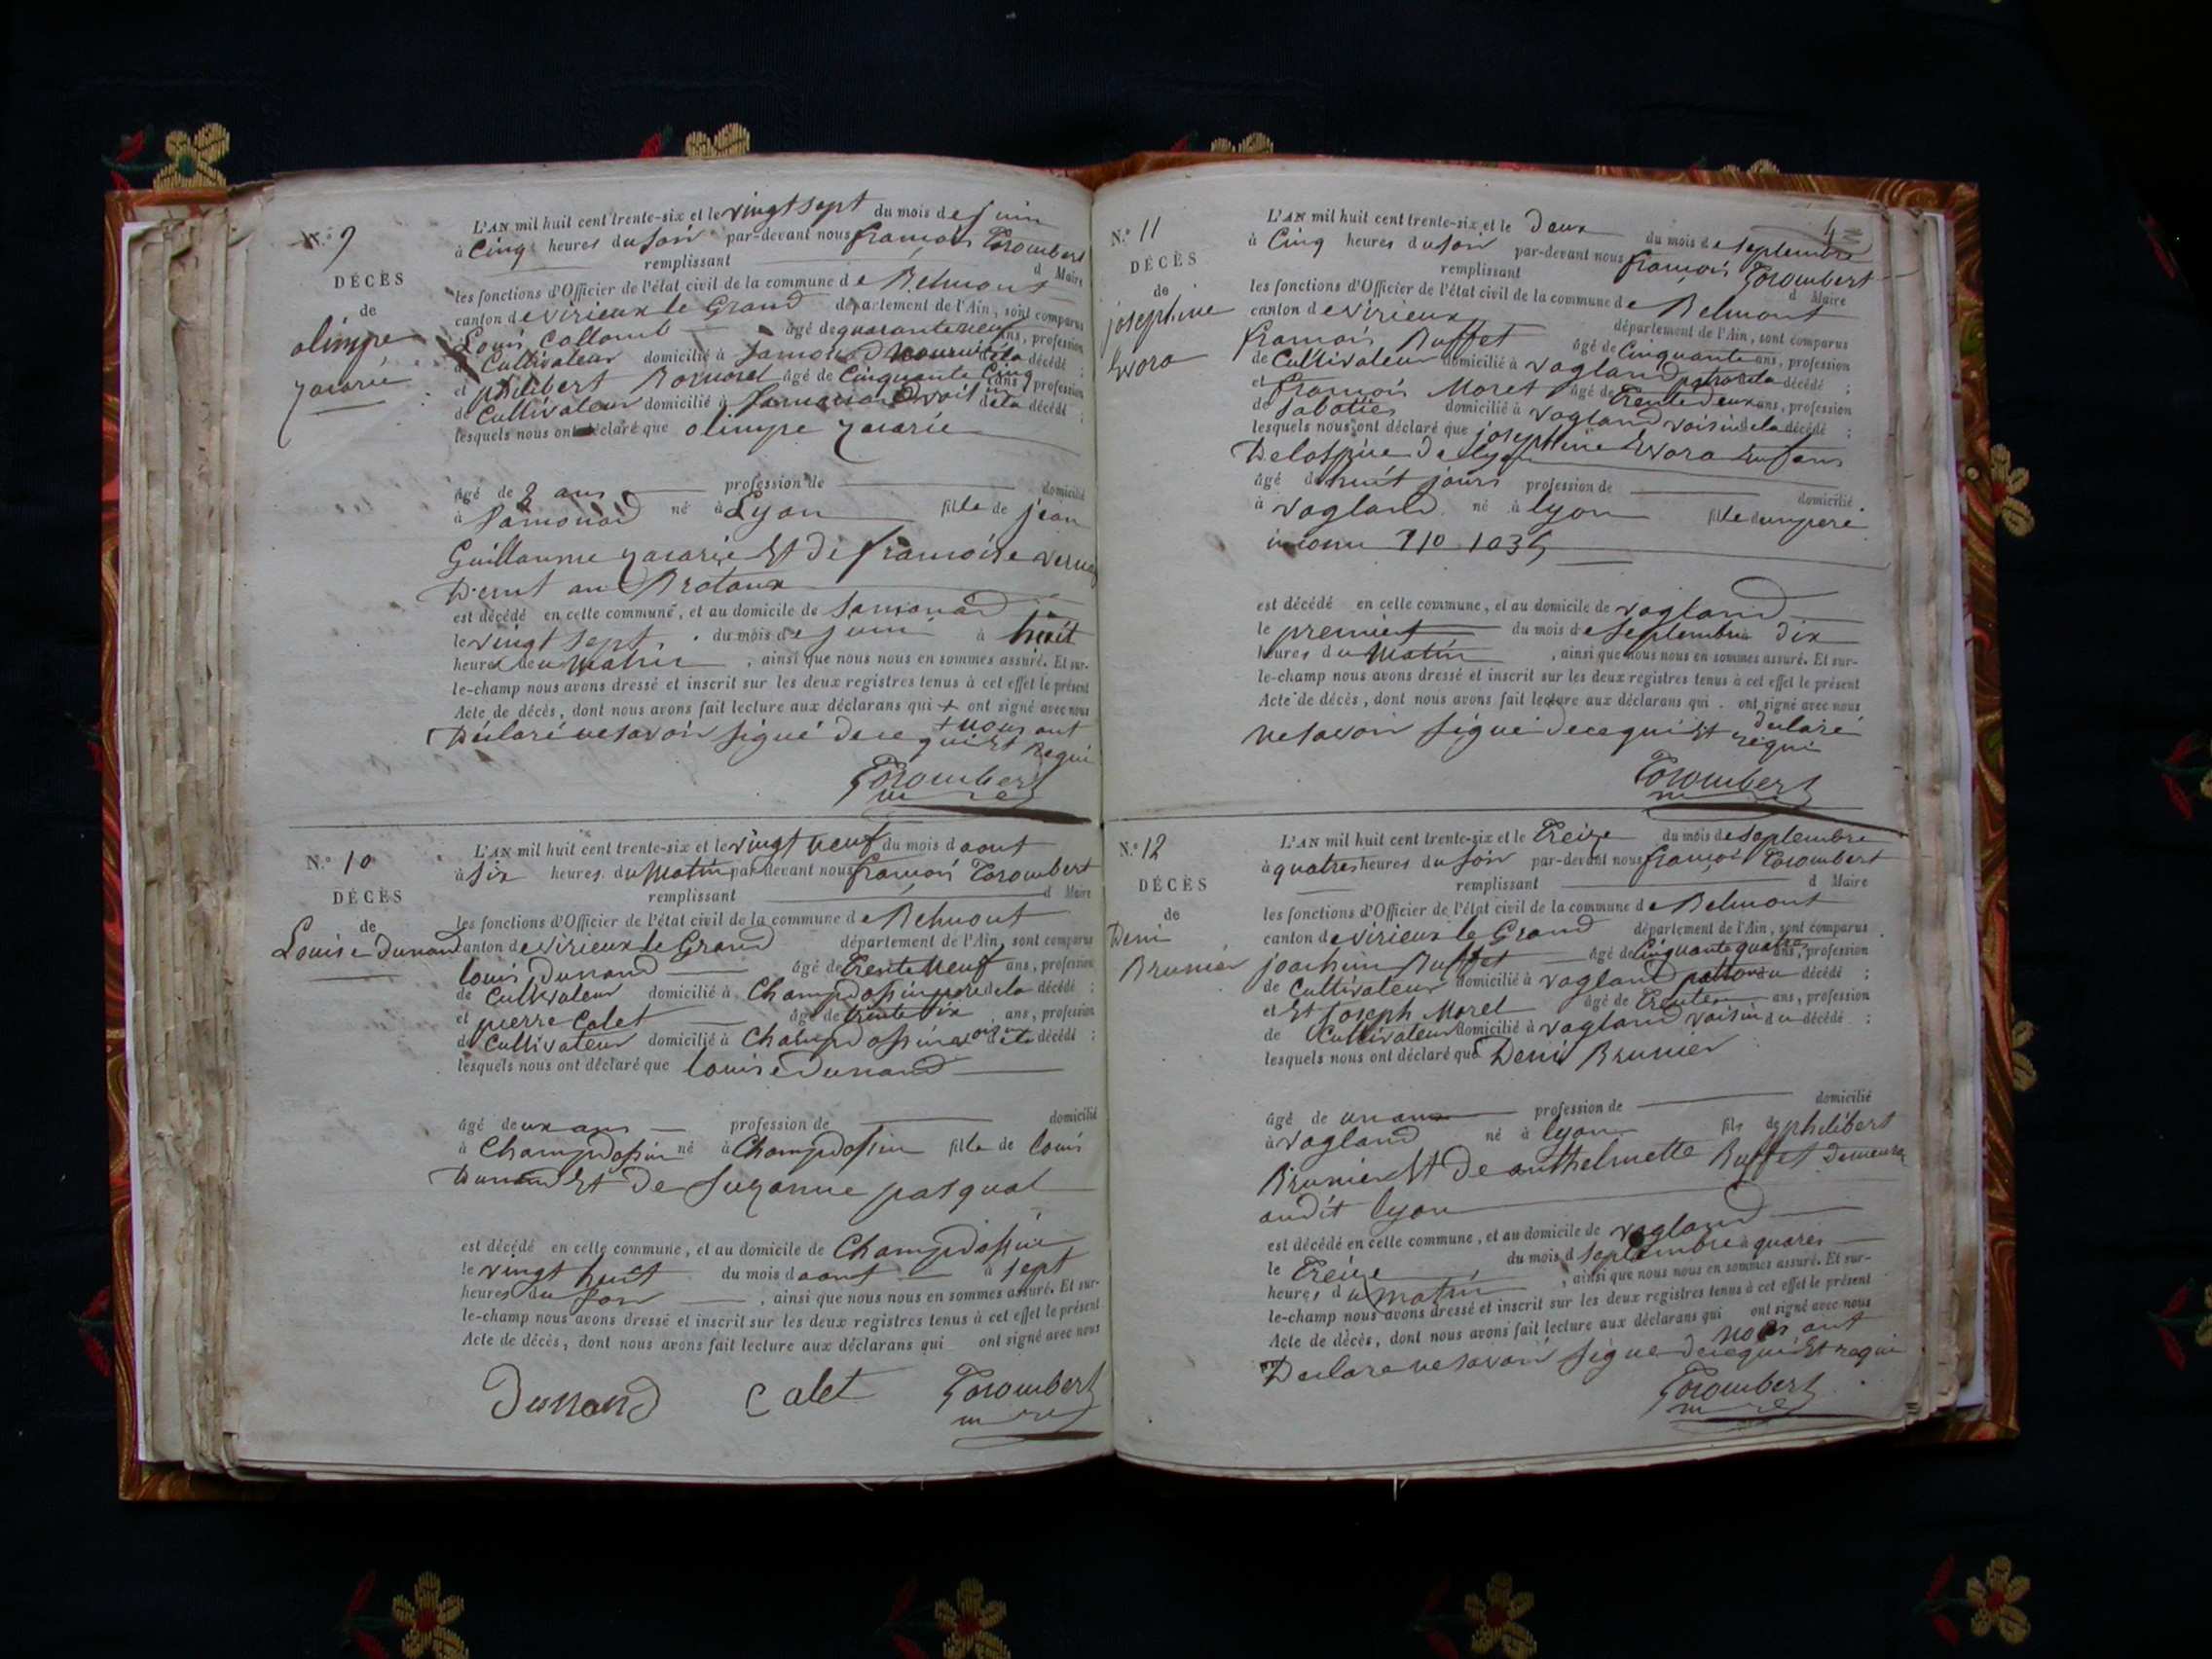 N.° 9
DÉCÈS
de
olimpe
zacarie
L'AN mil huit cent trente-six et le vingt sept du mois de juin
à Cinq heures du soir par-devant nous françois Torombert
remplissant d Maire
les fonctions d'Officier de l'état civil de la commune de Belmont
canton de virieux le Grand département de l'Ain, sont comparus
Louis Collomb âgé de quarante neuf ans, profession
de Cultivateur domicilié à de la décédé ;
et philibert âgé de Cinquante Cinq ans, profession
de Cultivateur domicilié à de la décédé ;
lesquels nous ont déclaré que olimpe zacarie
âgé de 2 ans profession de domicilié
à né à Lyon fille de jean
Guillaume zacarie Et de francoise
aux Brotaux
est décédé en cette commune, et au domicile de
le vingt sept du mois de juin à huit
heures du matin, ainsi que nous nous en sommes assuré. Et sur-
le-champ nous avons dressé et inscrit sur les deux registres tenus à cet effet le présent
Acte de décès, dont nous avons fait lecture aux déclarans qui + ont signé avec nous
+ nous ont
Déclaré ne savoir signé de ce qui Et Requi
Torombert
N.° 10
DÉCÈS
de
Louise Dunand
L'AN mil huit cent trente-six et le vingt neuf du mois d aout
à six heures du matin par-devant nous françois Torombert
remplissant d Maire
les fonctions d'Officier de l'état civil de la commune de Belmont
canton de virieux le Grand département de l'Ain, sont comparus
louis Dunand âgé de Trente Neuf ans, profession
de Cultivateur domicilié à Champdossin pere de la décédé ;
et pierre Calet âgé de trente six ans, profession
de Cultivateur domicilié à Champdossin voisin de la décédé ;
lesquels nous ont déclaré que louise Dunand
âgé deux ans profession de domicilié
à Champdossin né à Champdossin fille de louis
Dunand Et De Suzanne pasqual
est décédé en cette commune, et au domicile de Champdossin
le vingt huit du mois d aout à sept
heures du soir, ainsi que nous nous en sommes assuré. Et sur-
le-champ nous avons dressé et inscrit sur les deux registres tenus à cet effet le présent
Acte de décès, dont nous avons fait lecture aux déclarans qui ont signé avec nous
Dunand Calet Torombert
N.° 11
DÉCÈS
de
josephine
L'AN mil huit cent trente-six et le Deux du mois de septembre
à Cinq heures du soir par-devant nous françois Torombert
remplissant d Maire
les fonctions d'Officier de l'état civil de la commune de Belmont
canton de virieux département de l'Ain, sont comparus
francois Buffet âgé de Cinquante ans, profession
de Cultivateur domicilié à vogland de la décédé ;
et francois Moret âgé de Trente Deux ans, profession
de Sabotier domicilié à vogland voisin de la décédé ;
lesquels nous ont déclaré que josephine Enfans
De lospice De lyon
âgé de huit jours profession de domicilié
à vogland né à lyon fille dunpere
inconu
est décédé en cette commune, et au domicile de vogland
le premier du mois de septembre à Dix
heures du matin, ainsi que nous nous en sommes assuré. Et sur-
le-champ nous avons dressé et inscrit sur les deux registres tenus à cet effet le présent
Acte de décès, dont nous avons fait lecture aux déclarans qui ont signé avec nous
declaré
ne savoir signé de ce qui Et réqui
Torombert
N.° 12
DÉCÈS
de
Deni
Brunier
L'AN mil huit cent trente-six et le Treize du mois de septembre
à quatres heures du soir par-devant nous françois Torombert
remplissant d Maire
les fonctions d'Officier de l'état civil de la commune de Belmont
canton de virieux le Grand département de l'Ain, sont comparus
joachim Buffet âgé de Cinquante quatre ans, profession
de Cultivateur domicilié à vogland du décédé ;
et Et Joseph Moret âgé de Trente ans, profession
de Cultivateur domicilié à vogland voisin du décédé ;
lesquels nous ont déclaré que Deni Brunier
âgé de un an profession de domicilié
à vogland né à lyon fils de philibert
Brunier Et De anthelmette Buffet Demeura
audit lyon
est décédé en cette commune, et au domicile de vogland
le Treize du mois d septembre à quatres
heures du matin, ainsi que nous nous en sommes assuré. Et sur-
le-champ nous avons dressé et inscrit sur les deux registres tenus à cet effet le présent
Acte de décès, dont nous avons fait lecture aux déclarans qui ont signé avec nous
nous ont
Declare ne savoir signe de ce qui Et requi
Torombert